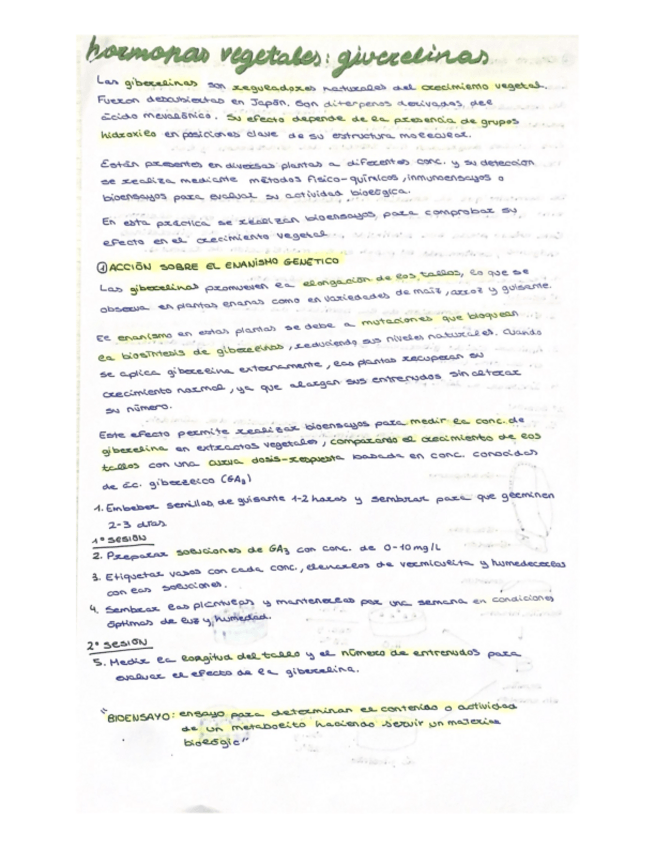 hormonas vegetales: giverelinas
Las giberelinas son reguladores naturales del crecimiento vegetal.
Fueron descubiertas en Japón. Son diterpenos derivados del
ácido mevalónico. Su efecto depende de la presencia de grupos
hidroxilo en posiciones clave de su estructura molecular.
Están presentes en diversas plantas a diferentes conc. y su detección
se realiza mediante métodos físico-químicos, inmunoensayos o
bioensayos para evaluar su actividad biológica.
En esta práctica se realizan bioensayos, para comprobar su
efecto en el crecimiento vegetal
① ACCIÓN SOBRE EL ENANISMO GENÉTICO
Las giberelinas promueven la elongación de los tallos, lo que se
observa en plantas enanas como en variedades de maíz, arroz y guisante.
El enanismo en estas plantas se debe a mutaciones que bloquean
la biosíntesis de giberelinas, reduciendo sus niveles naturales. Cuando
se aplica giberelina externamente, las plantas recuperan su
crecimiento normal, ya que alargan sus entrenudos sin alterar
su número.
Este efecto permite realizar bioensayos para medir la conc. de
giberelina en extractos vegetales, comparando el crecimiento de los
tallos con una curva dosis-respuesta basada en conc. conocidas
de ác. giberélico (GA3)
1. Embeber semillas de guisante 1-2 horas y sembrar para que germinen
2-3 días
1ª SESIÓN
2. Preparar soluciones de GA3 con conc. de 0-10 mg/L
3. Etiquetar vasos con cada conc., llenarlos de vermiculita y humedecerlos
con las soluciones.
4. Sembrar las plántulas y mantenerlas por una semana en condiciones
óptimas de luz y humedad.
2ª SESIÓN
5. Medir la longitud del tallo y el número de entrenudos para
evaluar el efecto de la giberelina.
"BIOENSAYO: ensayo para determinar el contenido o actividad
de un metabolito haciendo servir un material
biològic"